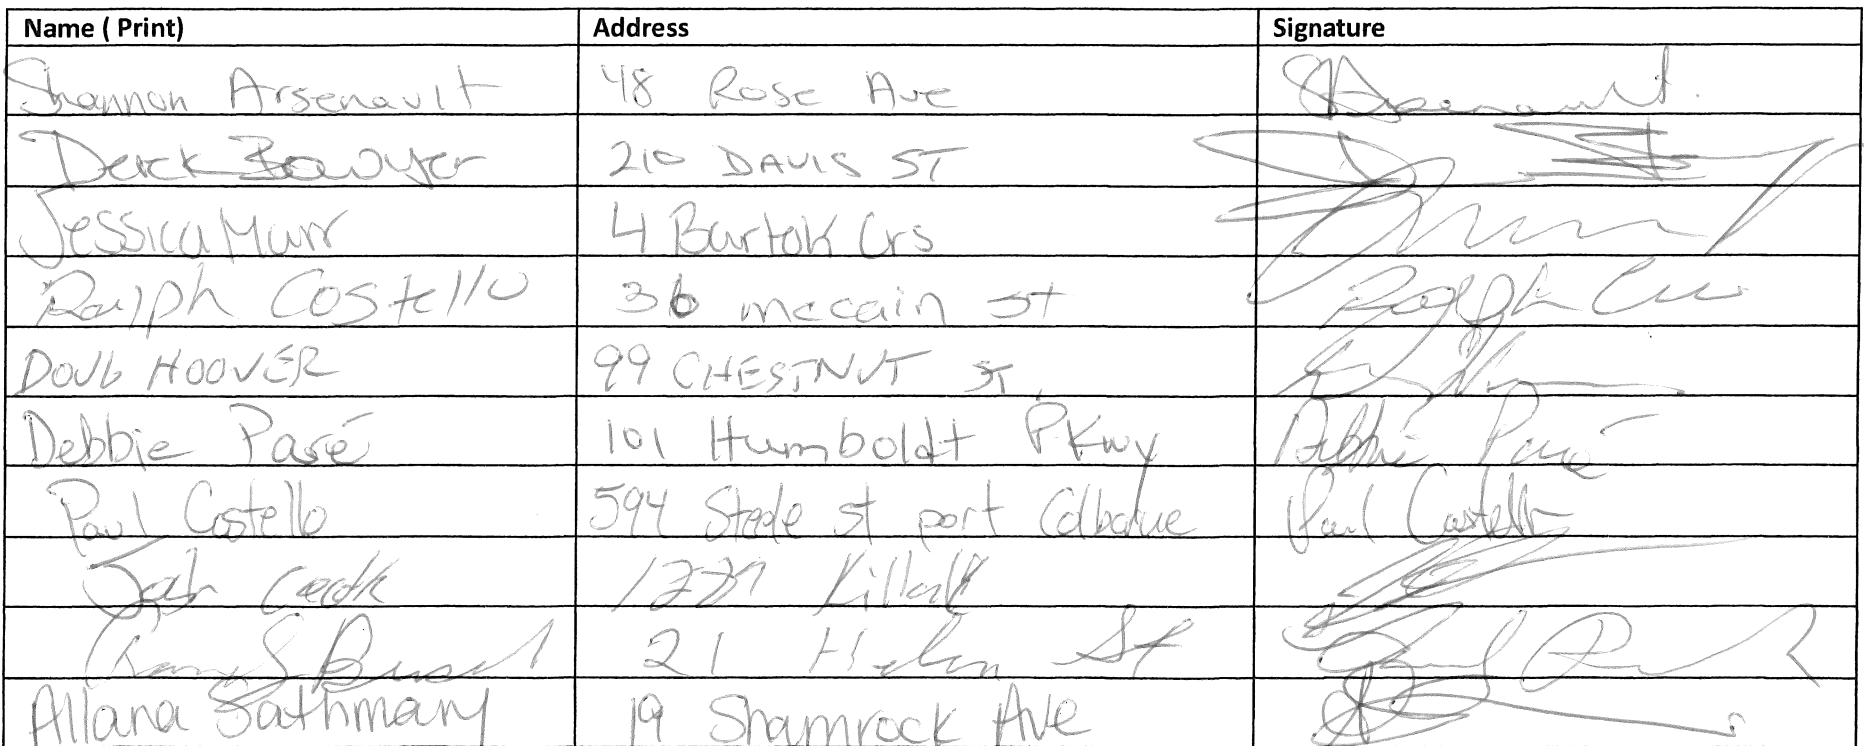 Name ( Print) Address Signature
Shannon Arsenault 48 Rose Ave
Derek Bowyer 210 DAVIS ST
Jessica Marr 4 Bartok Crs
Ralph Costello 36 mccain st Ralph
DOUG HOOVER 99 CHESTNUT ST.
Debbie Paré 101 Humboldt Pkwy Debbie Paré
Paul Costello 594 Steele st port Colborne Paul Costello
21 Helen St
Allana Sathmary 19 Shamrock Ave